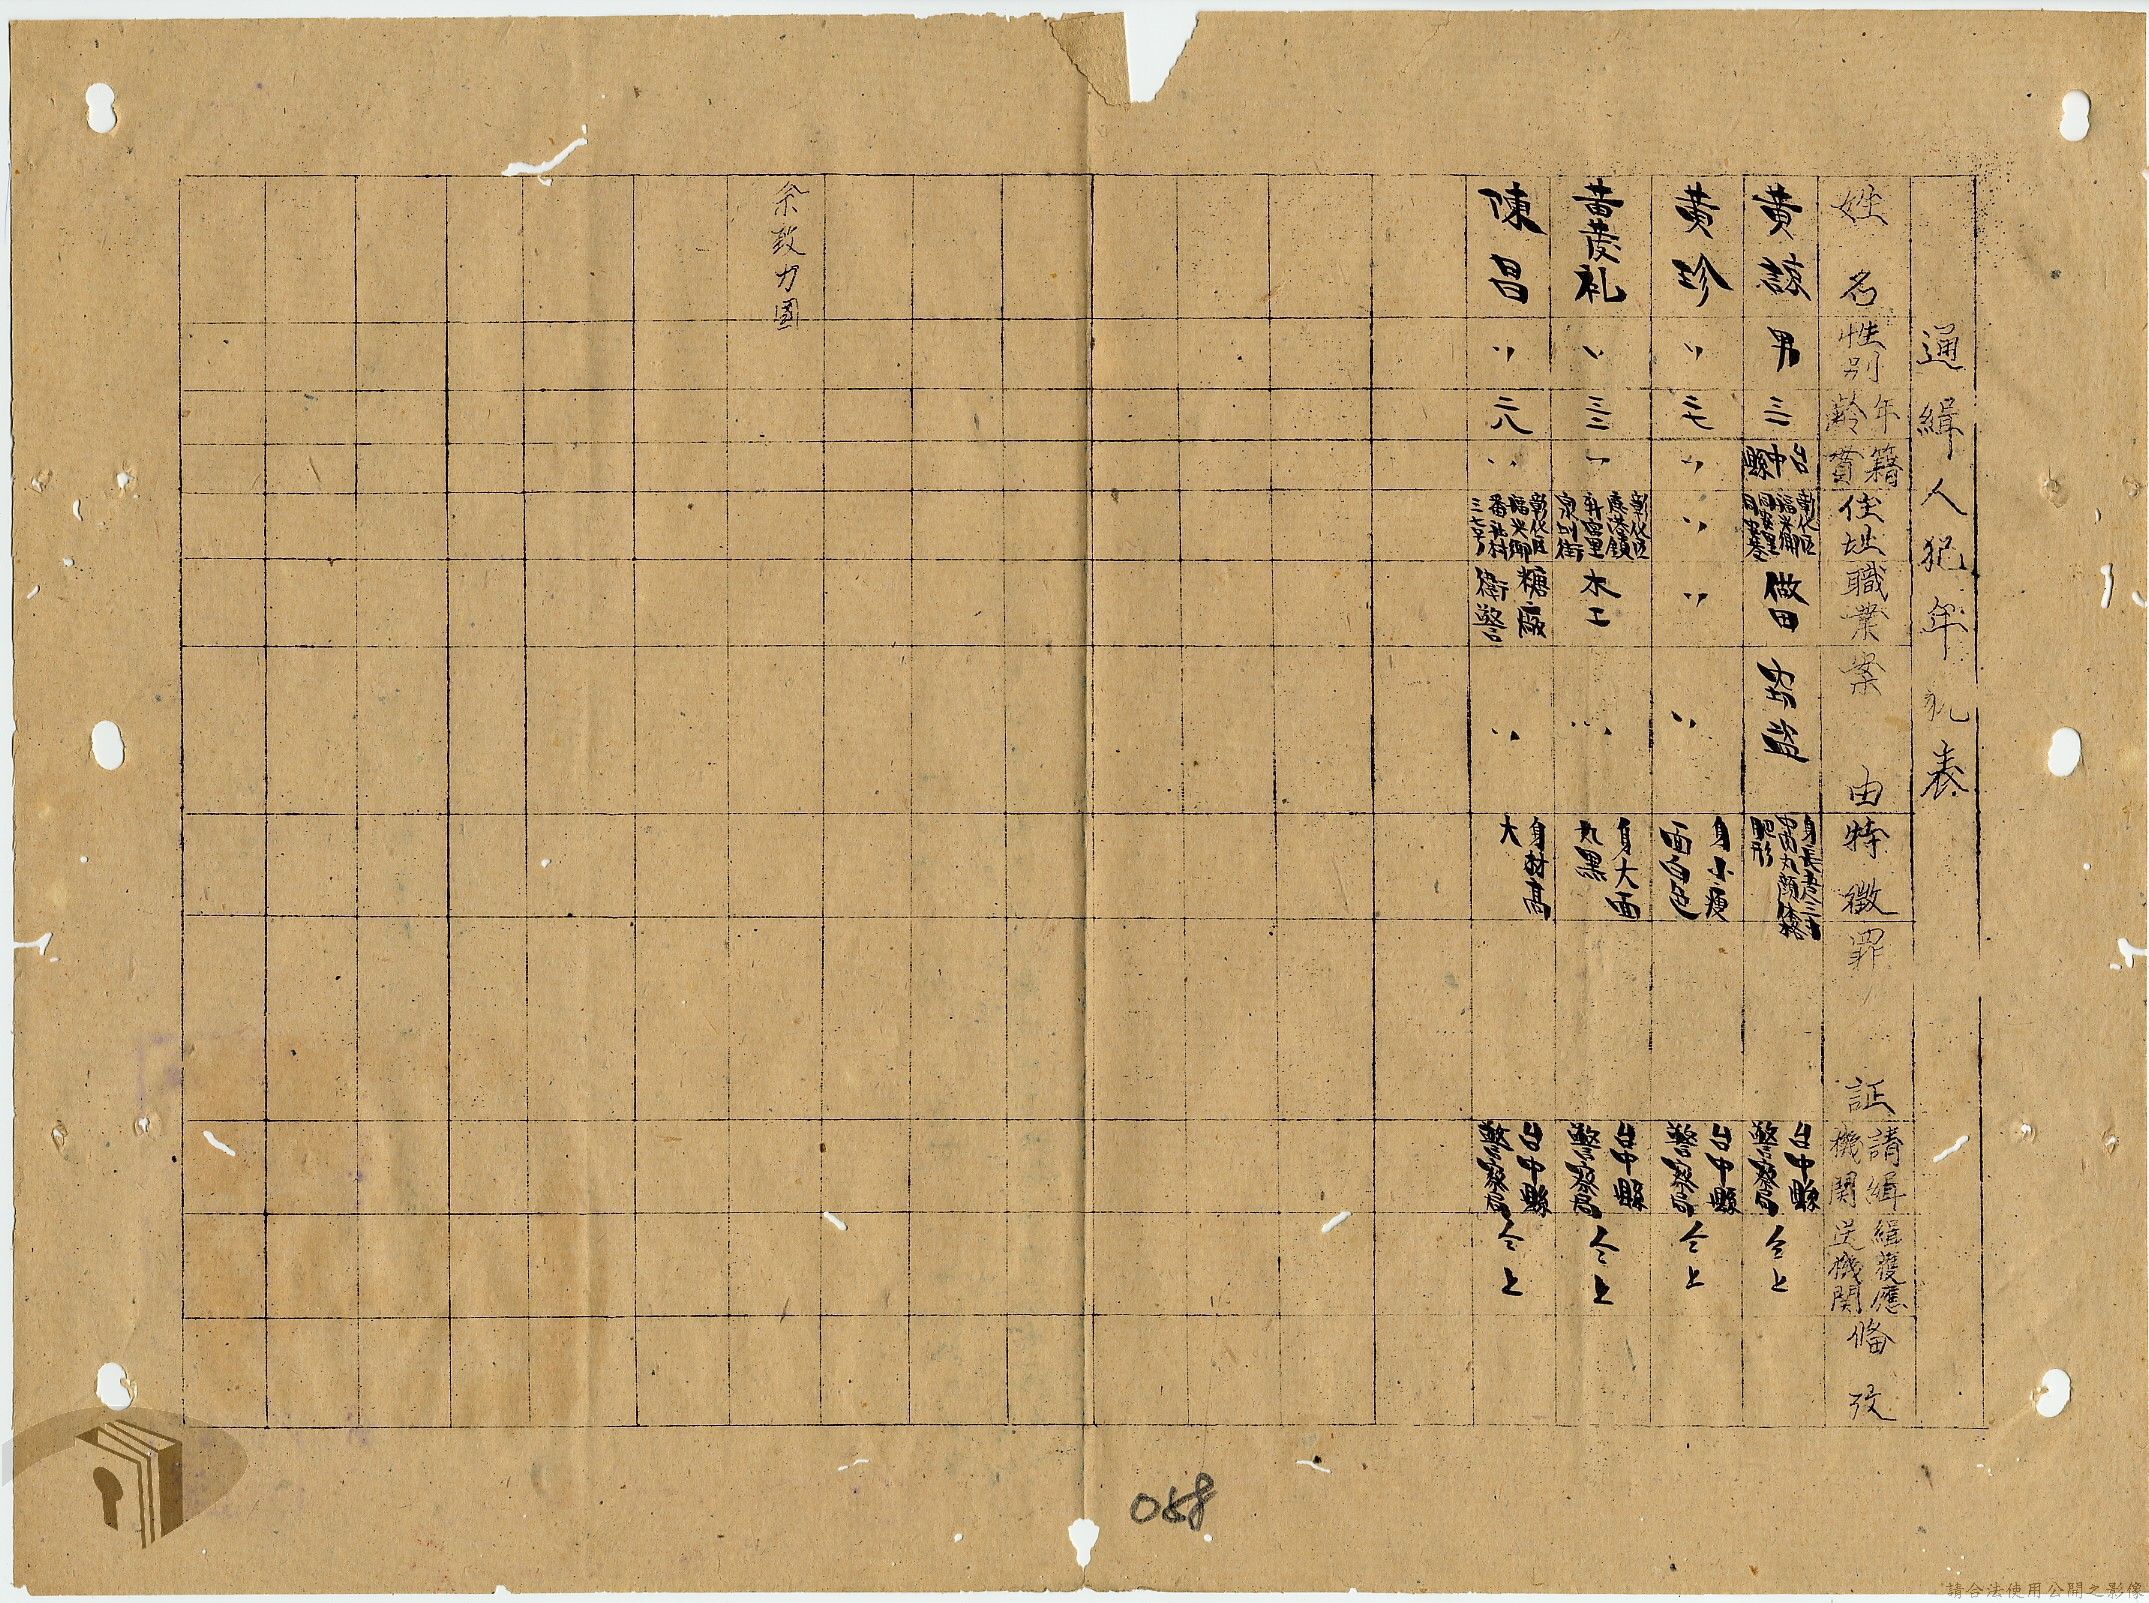 通緝人犯年扎表
姓名 性別 年齡 籍貫 住址 職業 案由 特徵 罪証 請緝機関 緝獲應送機関 俻攷
黄諒 男 三二 台中縣 彰化區福米鄉 做田 窃盗 身長五尺三寸 丸顔 肥形 台中縣警察局 仝上
黄珍 〃 二七 〃 〃 〃 〃 身小瘦 面白色 台中縣警察局 仝上
黃慶礼 〃 三三 〃 彰化區鹿港鎮 木工 〃 身大面丸黑 台中縣警察局 仝上
陳昌 〃 二八 〃 彰化區福米鄉番社村三七 糖廠衛警 〃 身材高大 台中縣警察局 仝上
余致力國
058
請合法使用公開之影像